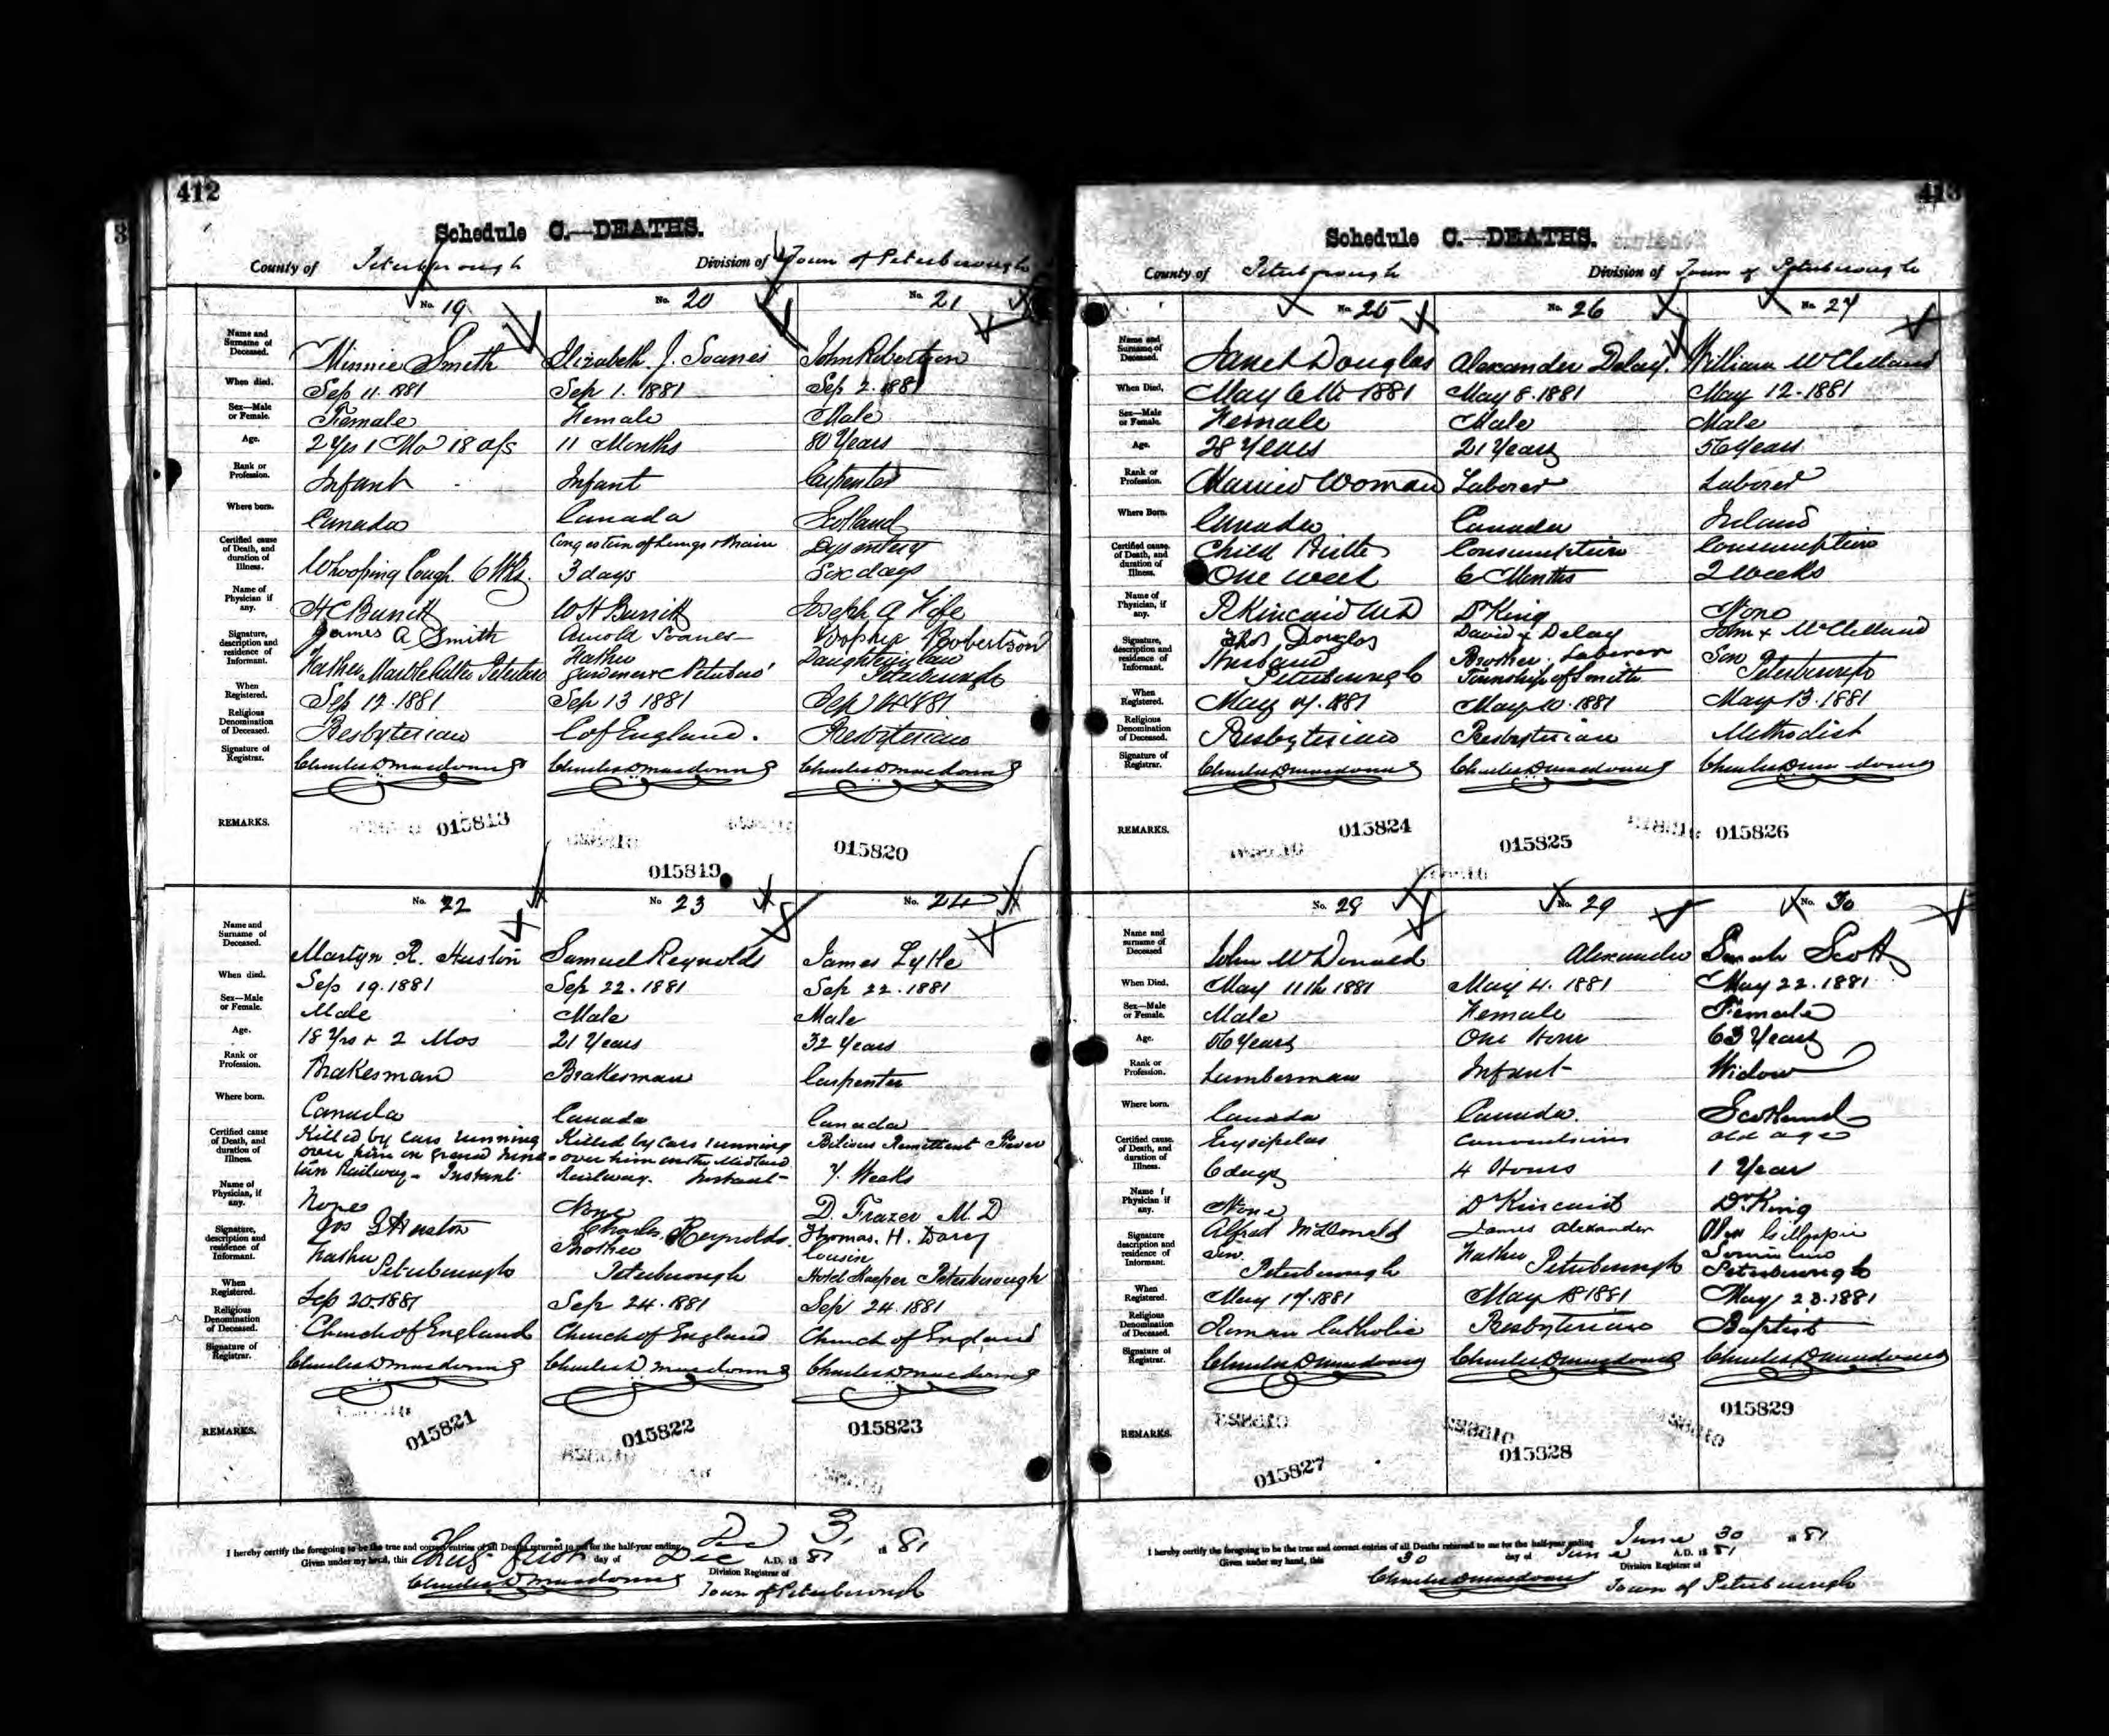 412
Schedule C.—DEATHS.
County of Peterborough Division of Town of Peterborough
No. 19 No. 20 No. 21
Name and Surname of Deceased. Minnie Smith Elizabeth. J. Soanes John Robertson
When died. Sep 11. 1881 Sep 1. 1881 Sep 2. 1881
Sex—Male or Female. Female Female Male
Age. 2 Yrs 1 Mo 18 d/s 11 Months 80 Years
Rank or Profession. Infant Infant Carpenter
Where born. Canada Canada Scotland
Certified cause of Death, and duration of Illness. Whooping Cough 6 Wks. Congestion of Lungs & Brain 3 days Dysentery Six days
Name of Physician if any. H C Burritt W H Burritt Joseph A Fife
Signature, description and residence of Informant. James A Smith Father Marble Cutter Peterboro Arnold Soanes Father Gardener Peterboro' Sophia Robertson Daughter in law Peterborough
When Registered. Sep 12. 1881 Sep 13 1881 Sep 1881
Religious Denomination of Deceased. Presbyterian C of England. Presbyterian
Signature of Registrar. Charles D Macdonnell Charles D Macdonnell Charles D Macdonnell
REMARKS. 015818 015819 015820
No. 22 No 23 No. 24
Name and Surname of Deceased. Martyn. R. Huston Samuel Reynolds James Lytle
When died. Sep 19. 1881 Sep 22. 1881 Sep 22. 1881
Sex—Male or Female. Male Male Male
Age. 18 Yrs & 2 Mos 21 Years 32 Years
Rank or Profession. Brakesman Brakesman Carpenter
Where born. Canada Canada Canada
Certified cause of Death, and duration of Illness. Killed by cars running over him on Grand Junction Railway - Instant Killed by cars running over him on the Midland Railway. Instant - Bilious Remittent Fever 7. Weeks
Name of Physician, if any. None None D. Frazer M. D
Signature, description and residence of Informant. Huston Father Peterborough Charles Reynolds. Brother Peterborough Thomas. H. Darcy Cousin Hotel Keeper Peterborough
When Registered. Sep 20. 1881 Sep 24. 1881 Sep 24. 1881
Religious Denomination of Deceased. Church of England Church of England Church of England
Signature of Registrar. Charles D Macdonnell Charles D Macdonnell Charles D Macdonnell
REMARKS. 015821 015822 015823
I hereby certify the foregoing to be the true and correct entries of all Deaths returned to me for the half-year ending Dec 3, 1881
Given under my hand, this first day of Dec A.D. 1881
Charles D Macdonnell Division Registrar of
Town of Peterborough
413
Schedule C.—DEATHS.
County of Peterborough Division of Town of Peterborough
No. 25 No. 26 No. 27
Name and Surname of Deceased. Janet Douglas Alexander Delay. William McClelland
When Died, May 6th 1881 May 8. 1881 May 12 - 1881
Sex—Male or Female. Female Male Male
Age. 28 Years 21 Years 56 Years
Rank or Profession. Married Woman Laborer Laborer
Where Born. Canada Canada Ireland
Certified cause. of Death, and duration of Illness. Child Birth One week Consumption 6 Months Consumption 2 weeks
Name of Physician, if any. R Kincaid MD Dr King None
Signature, description and residence of Informant. Thos Douglas Husband Peterborough David x Delay Brother. Laborer Township of Smith John x McClelland Son Peterborough
When Registered. May 7. 1881 May 10. 1881 May 13. 1881
Religious Denomination of Deceased. Presbyterian Presbyterian Methodist
Signature of Registrar. Charles D Macdonnell Charles D Macdonnell Charles D Macdonnell
REMARKS. 015824 015825 015826
No. 28 No. 29 No. 30
Name and surname of Deceased John McDonald Alexander Sarah Scott
When Died, May 11th 1881 May 4. 1881 May 22. 1881
Sex—Male or Female. Male Female Female
Age. 56 Years One Hour 63 Years
Rank or Profession. Lumberman Infant Widow
Where born. Canada Canada. Scotland
Certified cause. of Death, and duration of Illness. Erysipelas 6 days Convulsions 4 Hours old age 1 Year
Name f Physician if any. None Dr Kincaid Dr. King
Signature description and residence of Informant. Alfred McDonald Son. Peterborough James Alexander Father Peterborough Gillespie Son in law Peterborough
When Registered. May 17. 1881 May 18 1881 May 23. 1881
Religious Denomination of Deceased. Roman Catholic Presbyterian Baptist
Signature of Registrar. Charles D Macdonnell Charles D Macdonnell Charles D Macdonnell
REMARKS. 015827 015828 015829
I hereby certify the foregoing to be the true and correct entries of all Deaths returned to me for the half-year ending June 30 1881
Given under my hand, this 30 day of June A.D. 1881
Charles D Macdonnell Division Registrar of
Town of Peterborough